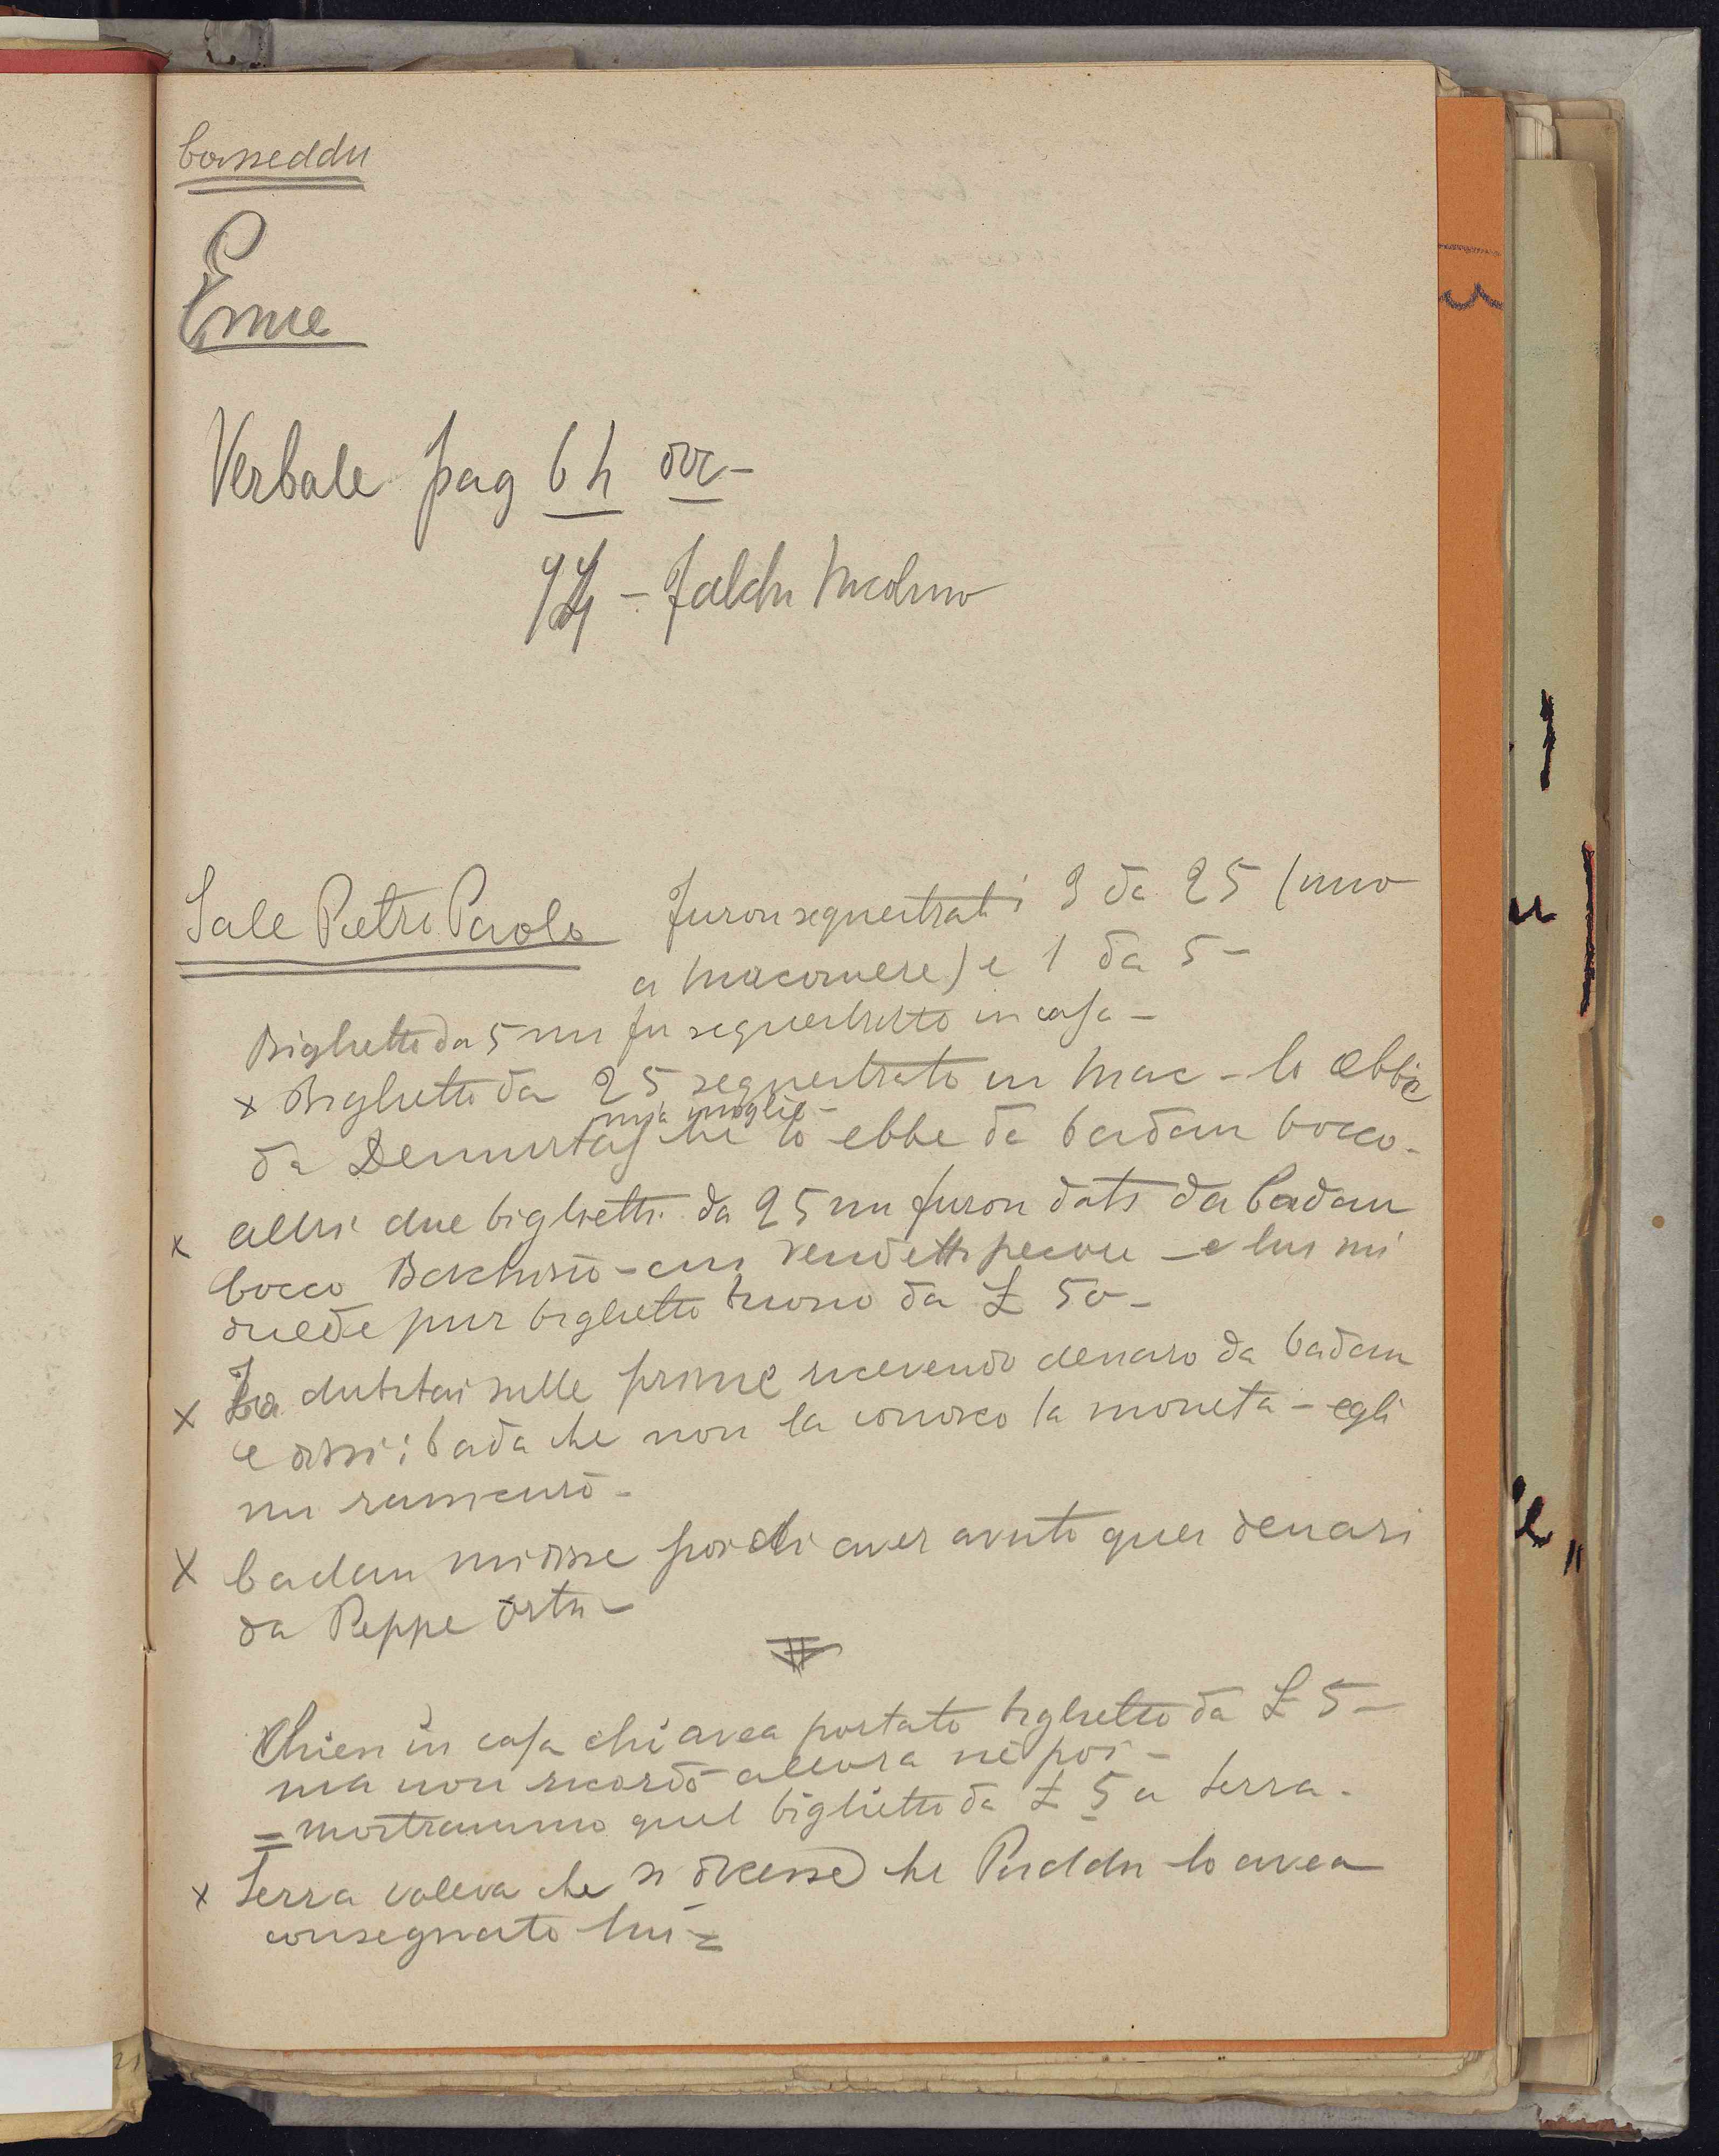 Casseddu
E
Emue
Verbale pag 64
94 - Falchi Nicolino
Sale Pietro Paolo Furon sequestrati 3 da 25 (uno
a Macomere) e 1 da 5 -
Biglietto da 5 mi fu sequestrato in casa -
x Biglietto da 25 sequestrato in Mac - lo ebbi
mia moglie -
da Demurtas che lo ebbe da Cadau Cocco -
x altri due biglietti da 25 mi furon dati da Cadau
Cocco Bachisio - cui vendetti pecore - e lui mi
diede pur biglietto buono da £ 50 -
x Io dubitai sulle prime ricevendo denaro da Cadau
e dissi: bada che non la conosco la moneta - egli
mi rassicurò -
x Cadau mi disse poi di aver avuto quei denari
da Peppe Ortu -
Chiesi in casa chi avea portato biglietto da £ 5 -
ma non ricordò allora nè poi -
= mostrammo quel biglietto da £ 5 a Serra -
x Serra voleva che si dicesse che Puddu lo avea
consegnato lui =